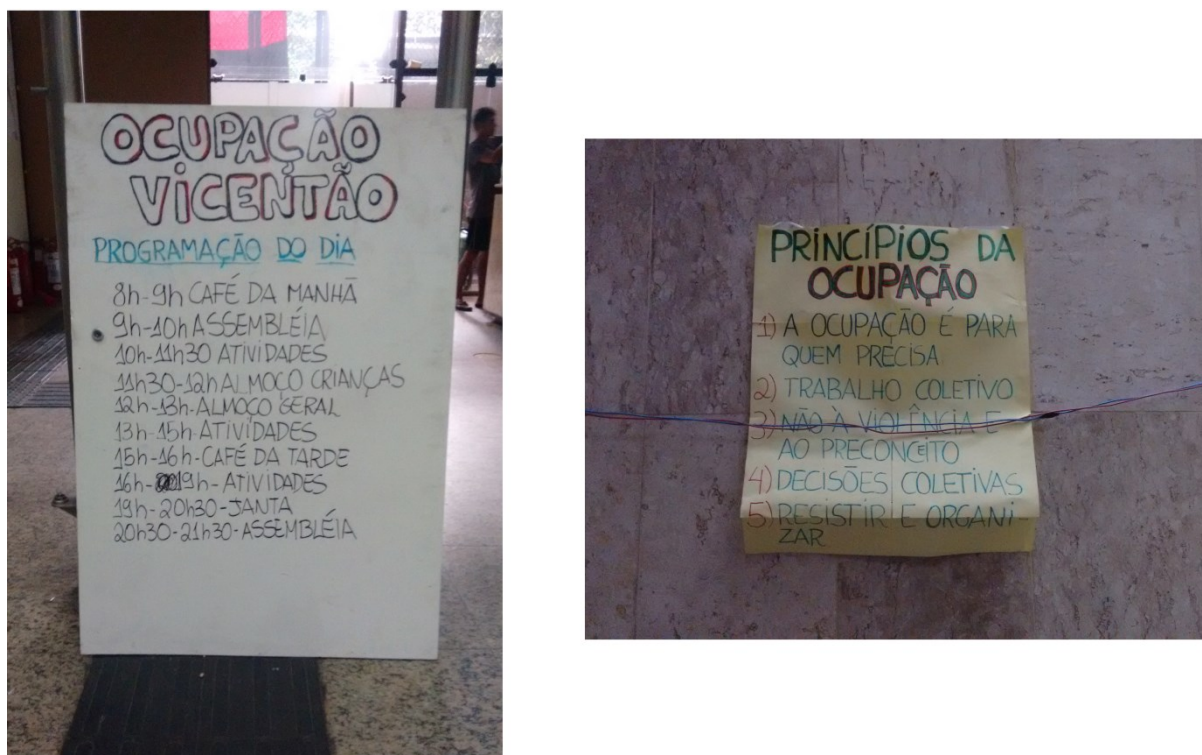 OCUPAÇÃO
VICENTÃO
PROGRAMAÇÃO DO DIA
8h-9h CAFÉ DA MANHÃ
9h-10h ASSEMBLÉIA
10h-11h30 ATIVIDADES
11h30-12h ALMOÇO CRIANÇAS
12h-13h-ALMOÇO GERAL
13h-15h-ATIVIDADES
15h-16h-CAFÉ DA TARDE
16h-19h-ATIVIDADES
19h-20h30-JANTA
20h30-21h30-ASSEMBLÉIA
PRINCÍPIOS DA
OCUPAÇÃO
1) A OCUPAÇÃO É PARA
QUEM PRECISA
2) TRABALHO COLETIVO
3) NÃO À VIOLÊNCIA E
AO PRECONCEITO
4) DECISÕES COLETIVAS
5) RESISTIR E ORGANI
ZAR